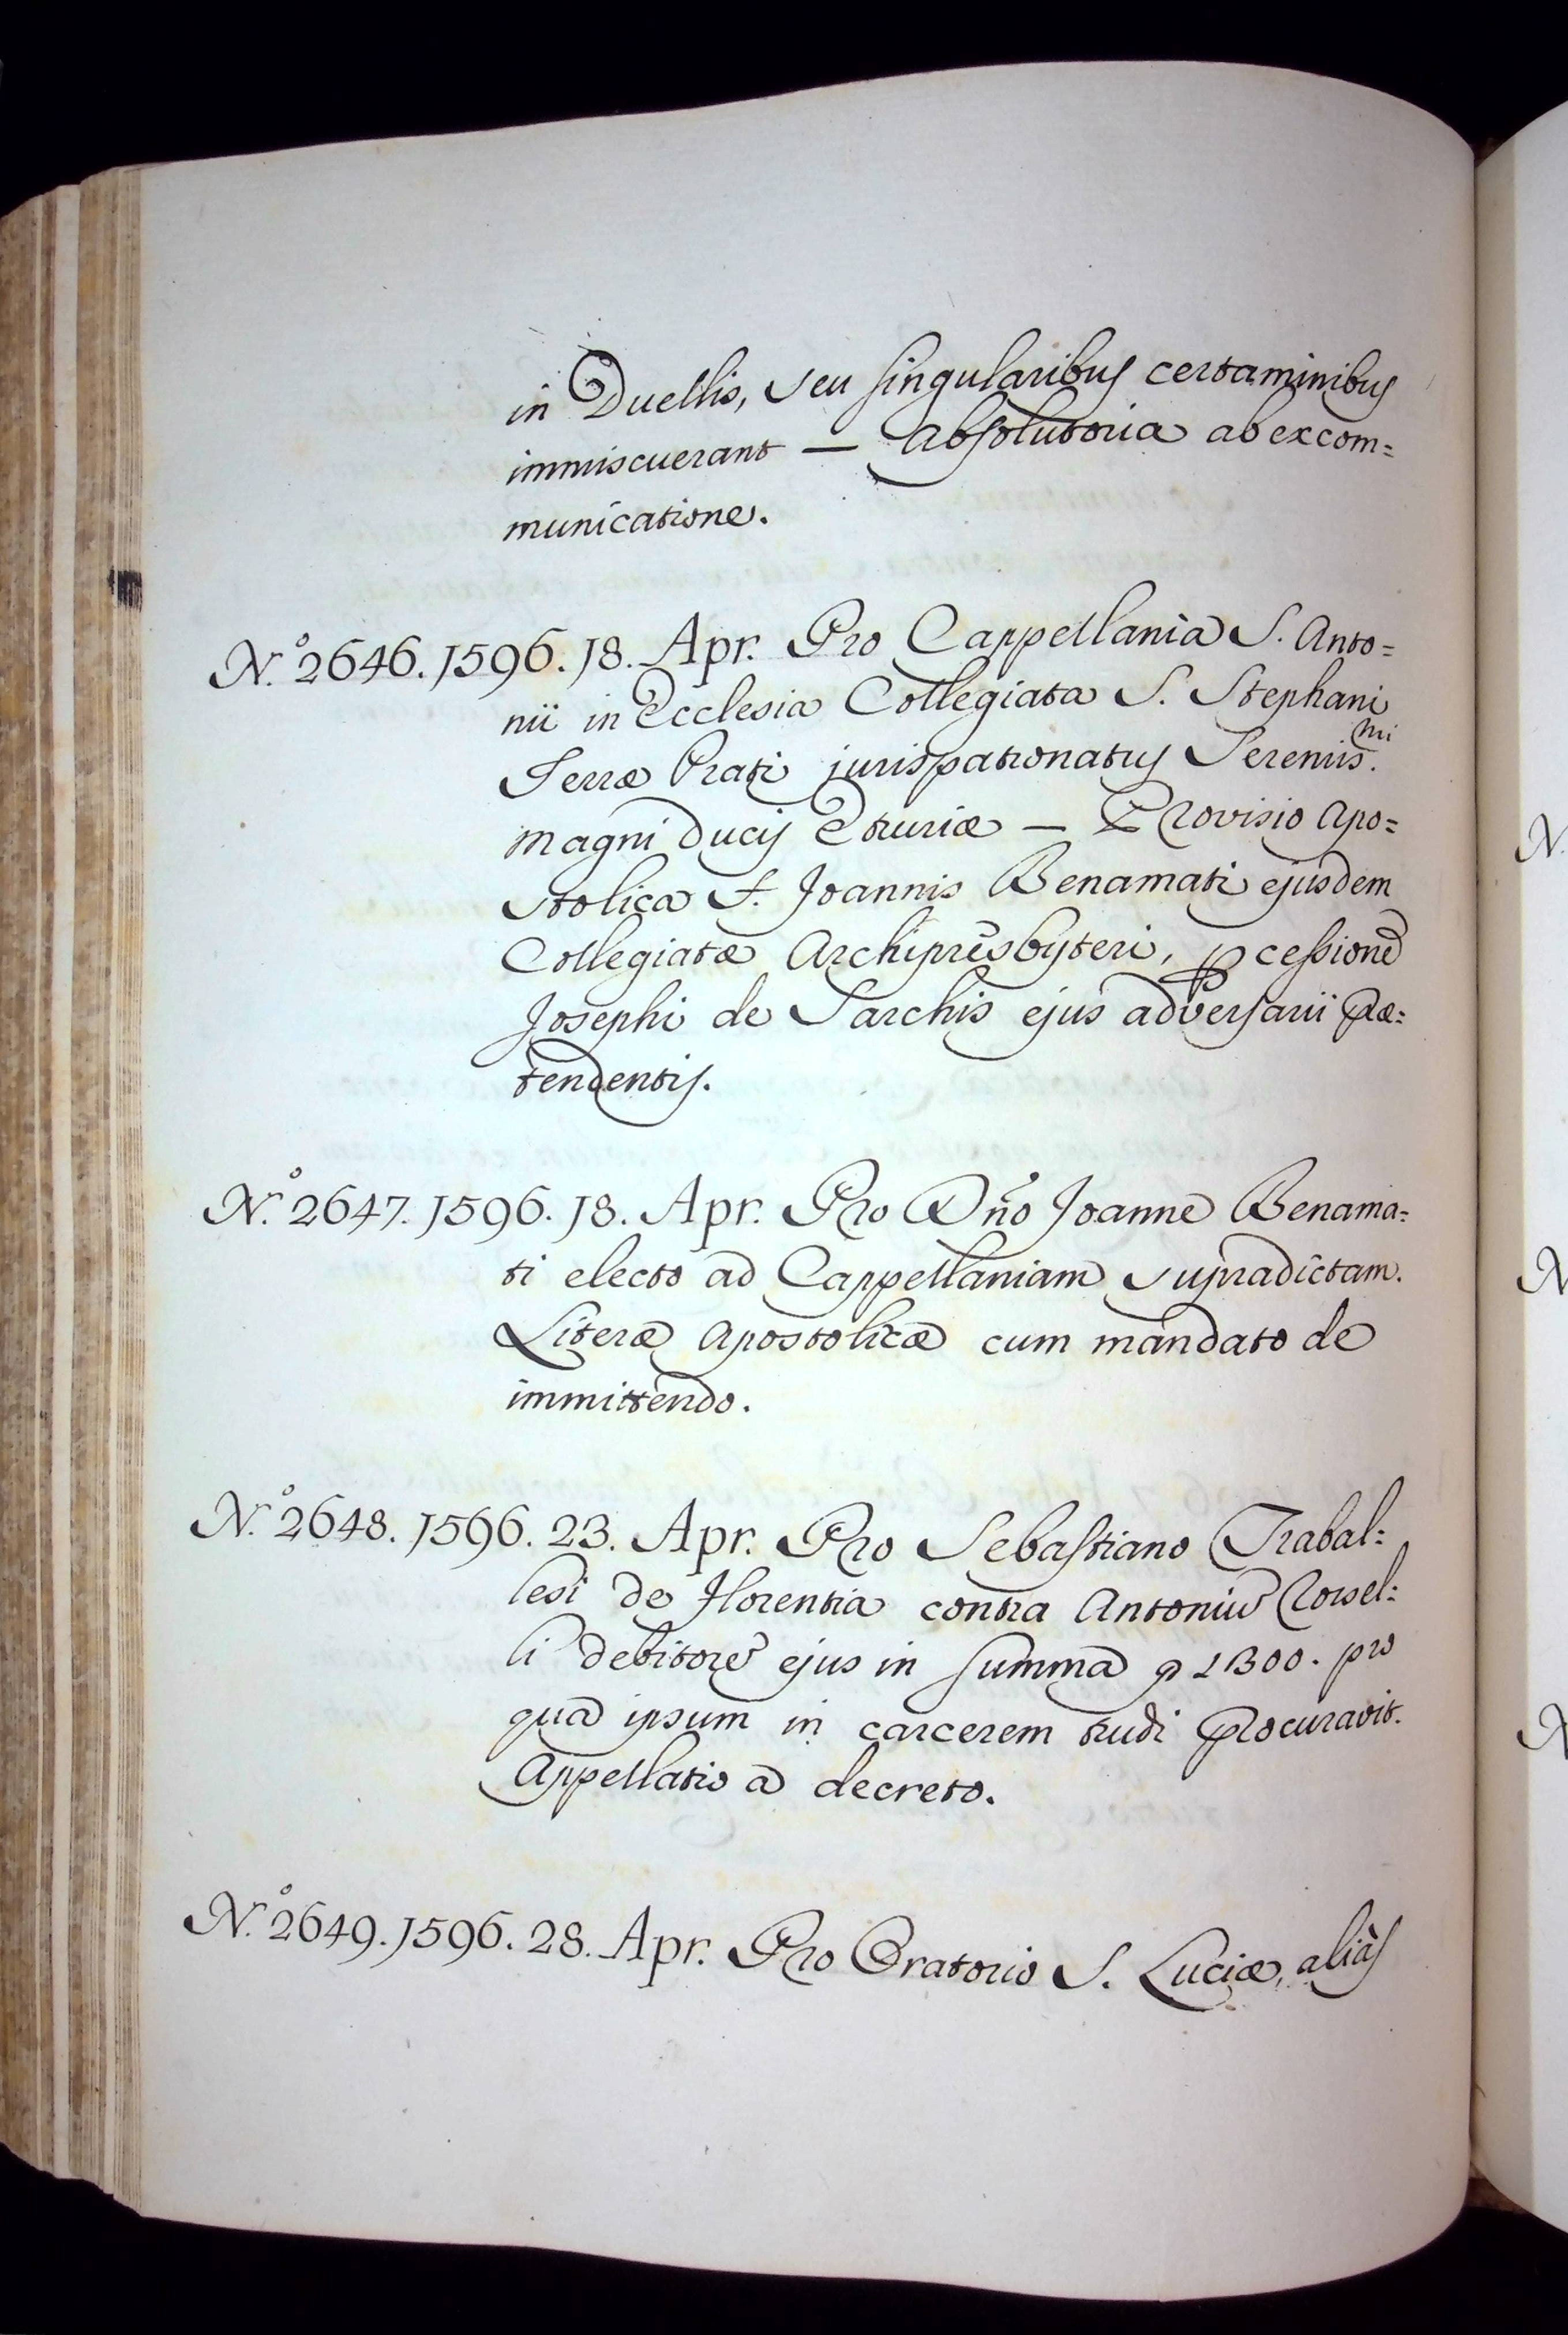 in Duellis, seu singularibus certaminibus
immiscuerant — Absolutoria ab excom=
municatione.
N.° 2646. 1596. 18. Apr. Pro Cappellania S. Anto=
nii in Ecclesia Collegiata S. Stephani
Terræ Prati jurispatronatus Sereniss.mi
Magni Ducis Etruriæ — Provisio Apo=
stolica f. Joannis Benamati ejusdem
Collegiatæ Archipresbyteri, ꝑ cessionē
Josephi de Sarchis ejus adversarii præ=
tendentis.
N.° 2647. 1596. 18. Apr. Pro Dño Joanne Benama=
ti electo ad Cappellaniam supradictam.
Literæ Apostolicæ cum mandato de
immittendo.
N.° 2648. 1596. 23. Apr. Pro Sebastiano Trabal=
lesi de Florentia contra Antoniū Rosel=
li debitorē ejus in summa 1300. pro
qua ipsum in carcerem trudi procuravit.
Appellatio a decreto.
N.° 2649. 1596. 28. Apr. Pro Oratorio S. Luciæ, aliàs
N.
N
N